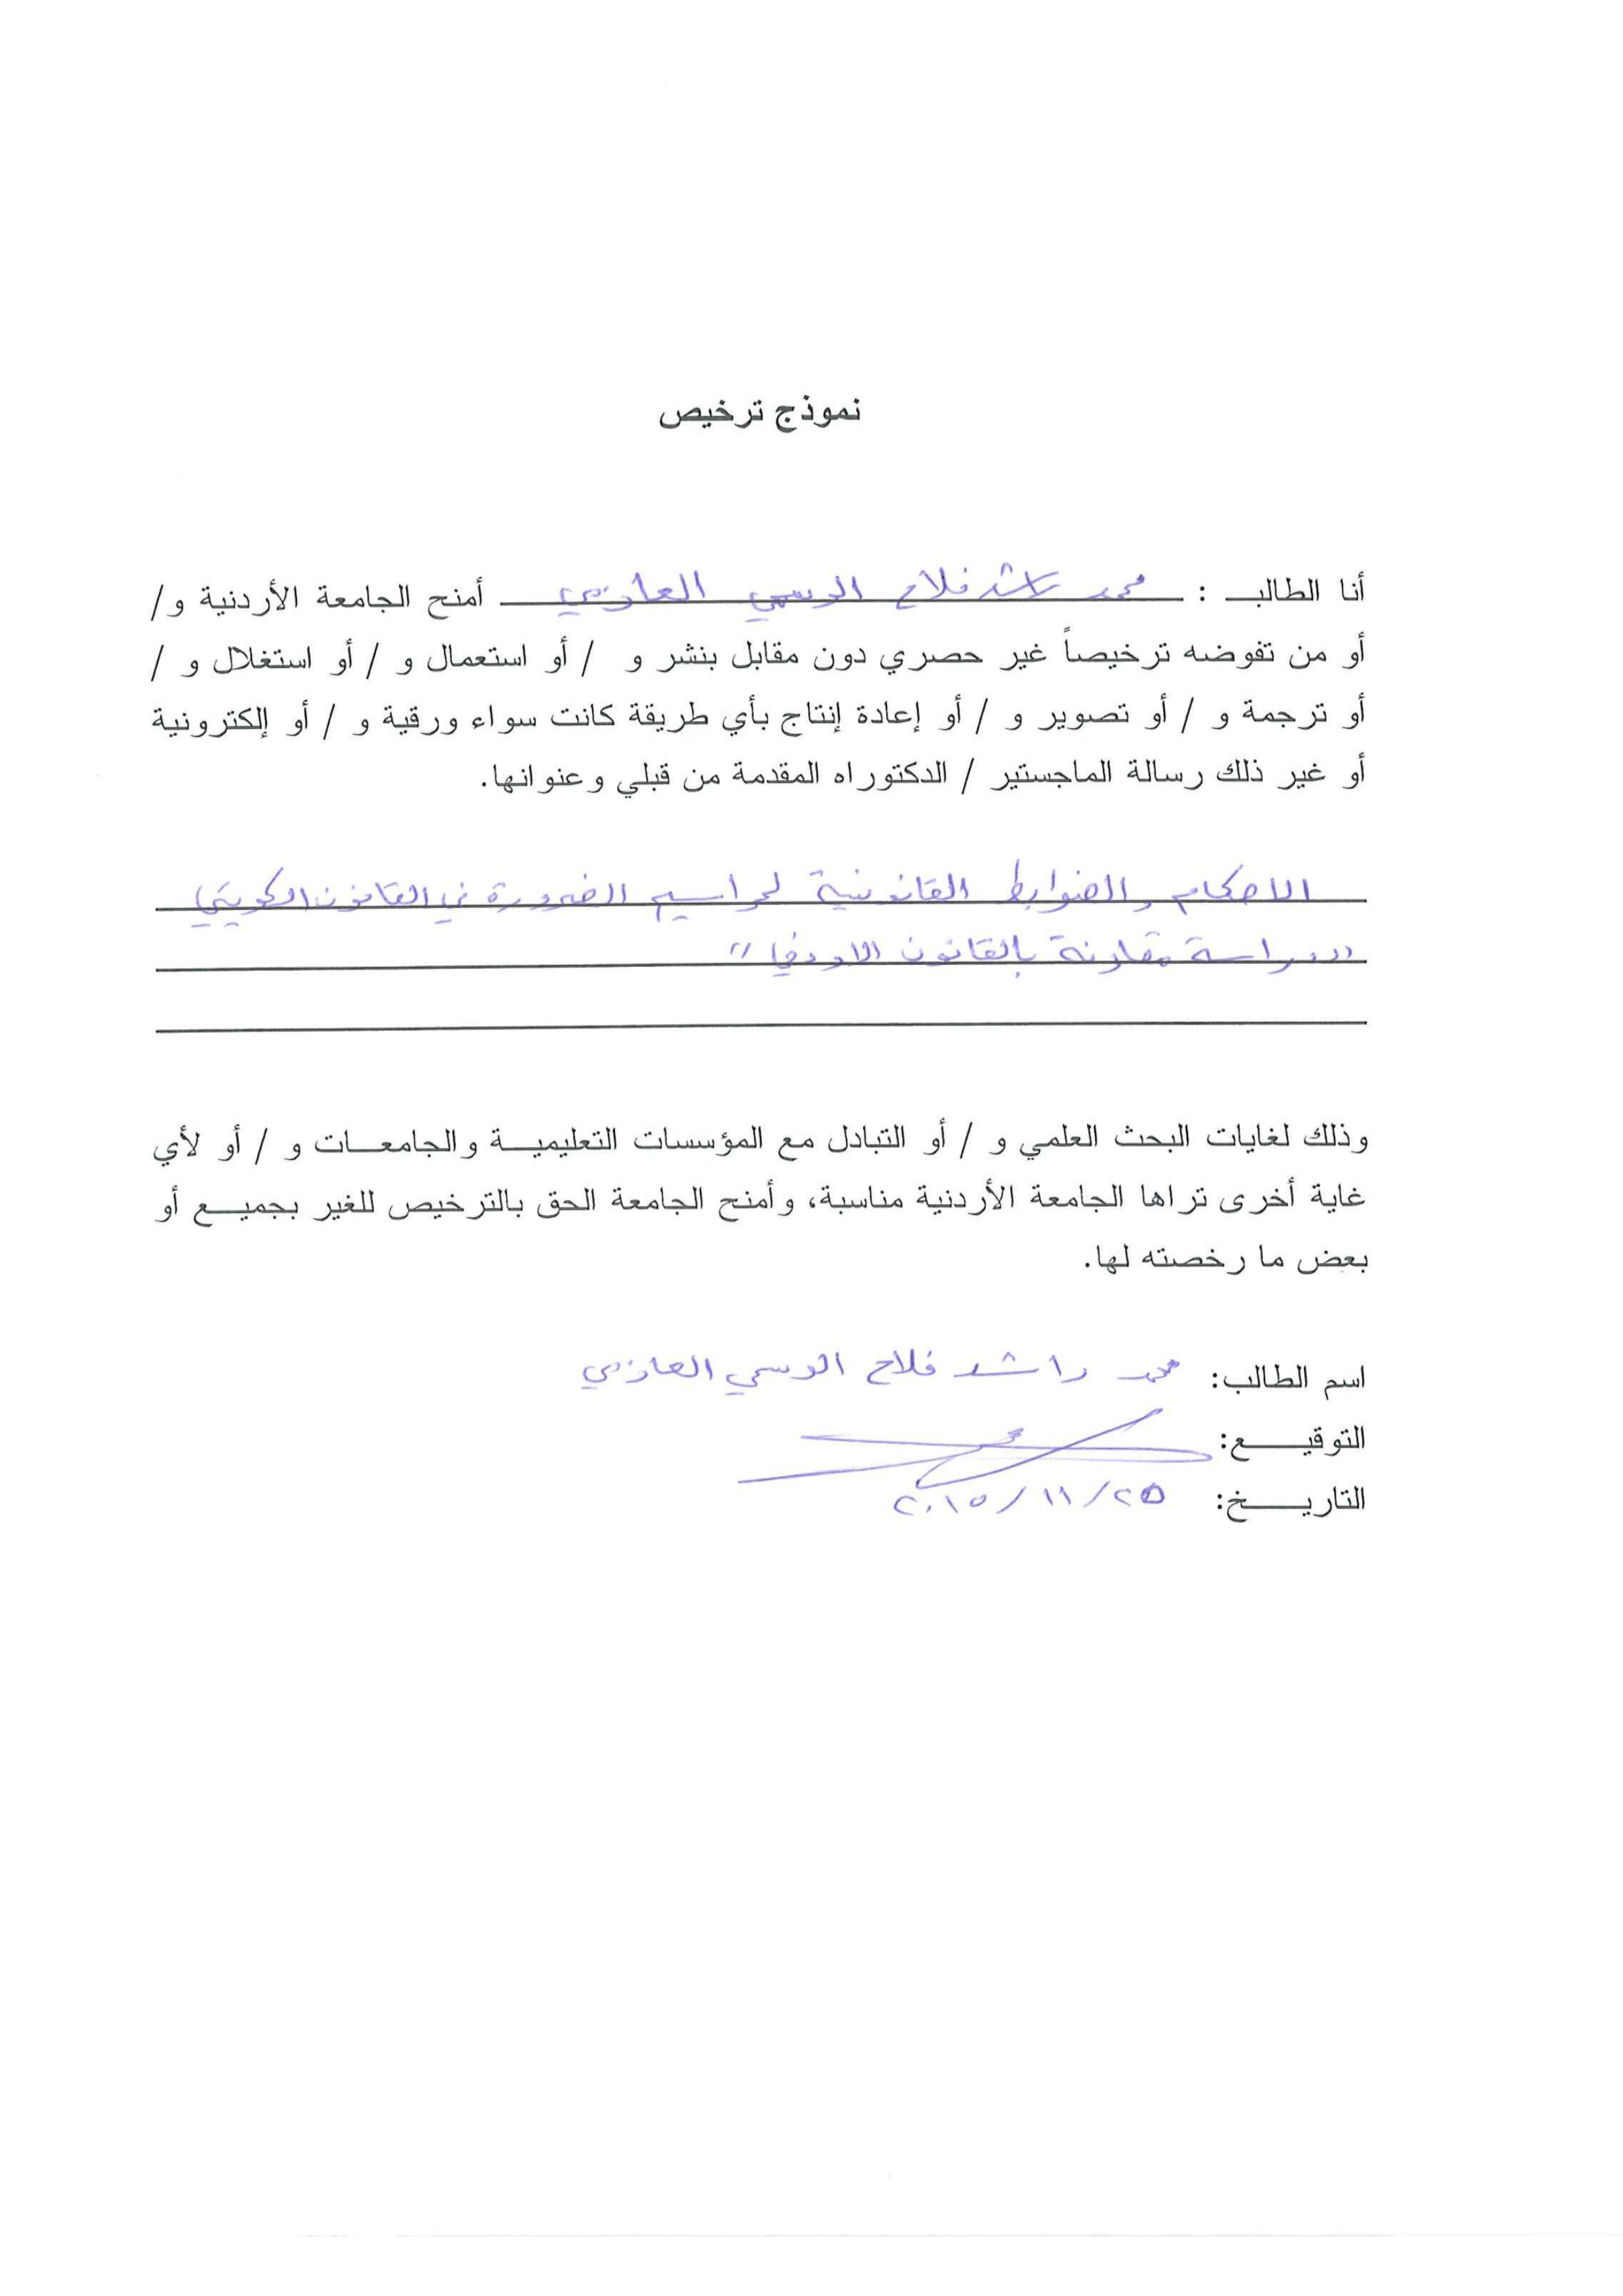 نموذج ترخيص
أنا الطالب : محمد راشد فلاح الوسمي العازمي أمنح الجامعة الأردنية و/
أو من تفوضه ترخيصاً غير حصري دون مقابل بنشر و / أو استعمال و / أو استغلال و /
أو ترجمة و / أو تصوير و / أو إعادة إنتاج بأي طريقة كانت سواء ورقية و / أو إلكترونية
أو غير ذلك رسالة الماجستير / الدكتوراه المقدمة من قبلي وعنوانها.
الاحكام والضوابط القانونية لمراسيم الضرورة في القانون الكويتي
"دراسة مقارنة بالقانون الاردني"
وذلك لغايات البحث العلمي و / أو التبادل مع المؤسسات التعليمية والجامعات و / أو لأي
غاية أخرى تراها الجامعة الأردنية مناسبة، وأمنح الجامعة الحق بالترخيص للغير بجميع أو
بعض ما رخصته لها.
اسم الطالب: محمد راشد فلاح الوسمي العازمي
التوقيع:
التاريخ: ٢٥/ ١١/ ٢٠١٥